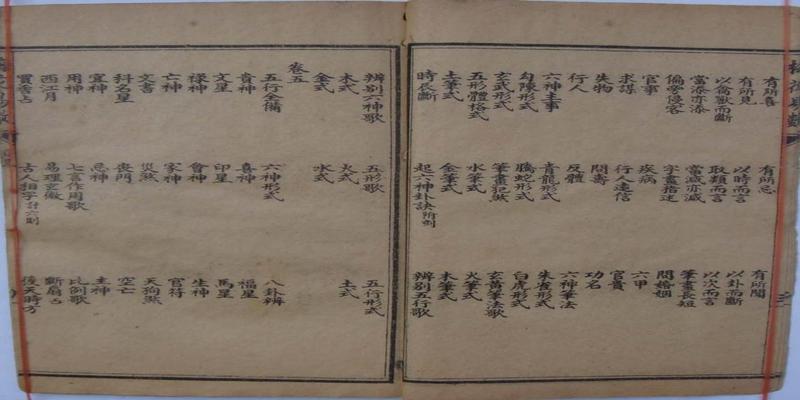 有所喜　有所忌　有所聞
有所見　以時而言　以卦而斷
以禽獸而斷　取類而言　以次而言
當添亦添　當減亦減　筆畫長短
偏旁侵客　字畫指迷　問婚姻
官事　疾病　六甲
求謀　行人　官貴
失物　問壽　功名
行人　反體　六神筆法
六神主事　青龍形式　朱雀形式
勾陳形式　騰蛇形式　白虎形式
玄武形式　筆畫犯煞　玄黃筆法歌
五形體格式　水筆式　火筆式
土筆式　金筆式　木筆式
時辰斷　起六神卦訣　辨別五行歌
辨別六神歌　五形歌　五行形式
木式　火式　土式
金式　水式
卷五
五行全備　六神形式　八卦辨
貴神　喜神　福星
文星　印星　馬星
祿神　會神　生神
亡神　家神　官符
文書　災煞　天狗煞
科名星　喪門　空亡
宜神　忌神　主神
用神　七言作用歌　比例歌
西江月　易理玄微　斷扇占
買香占　古人相字計六則　後天時方